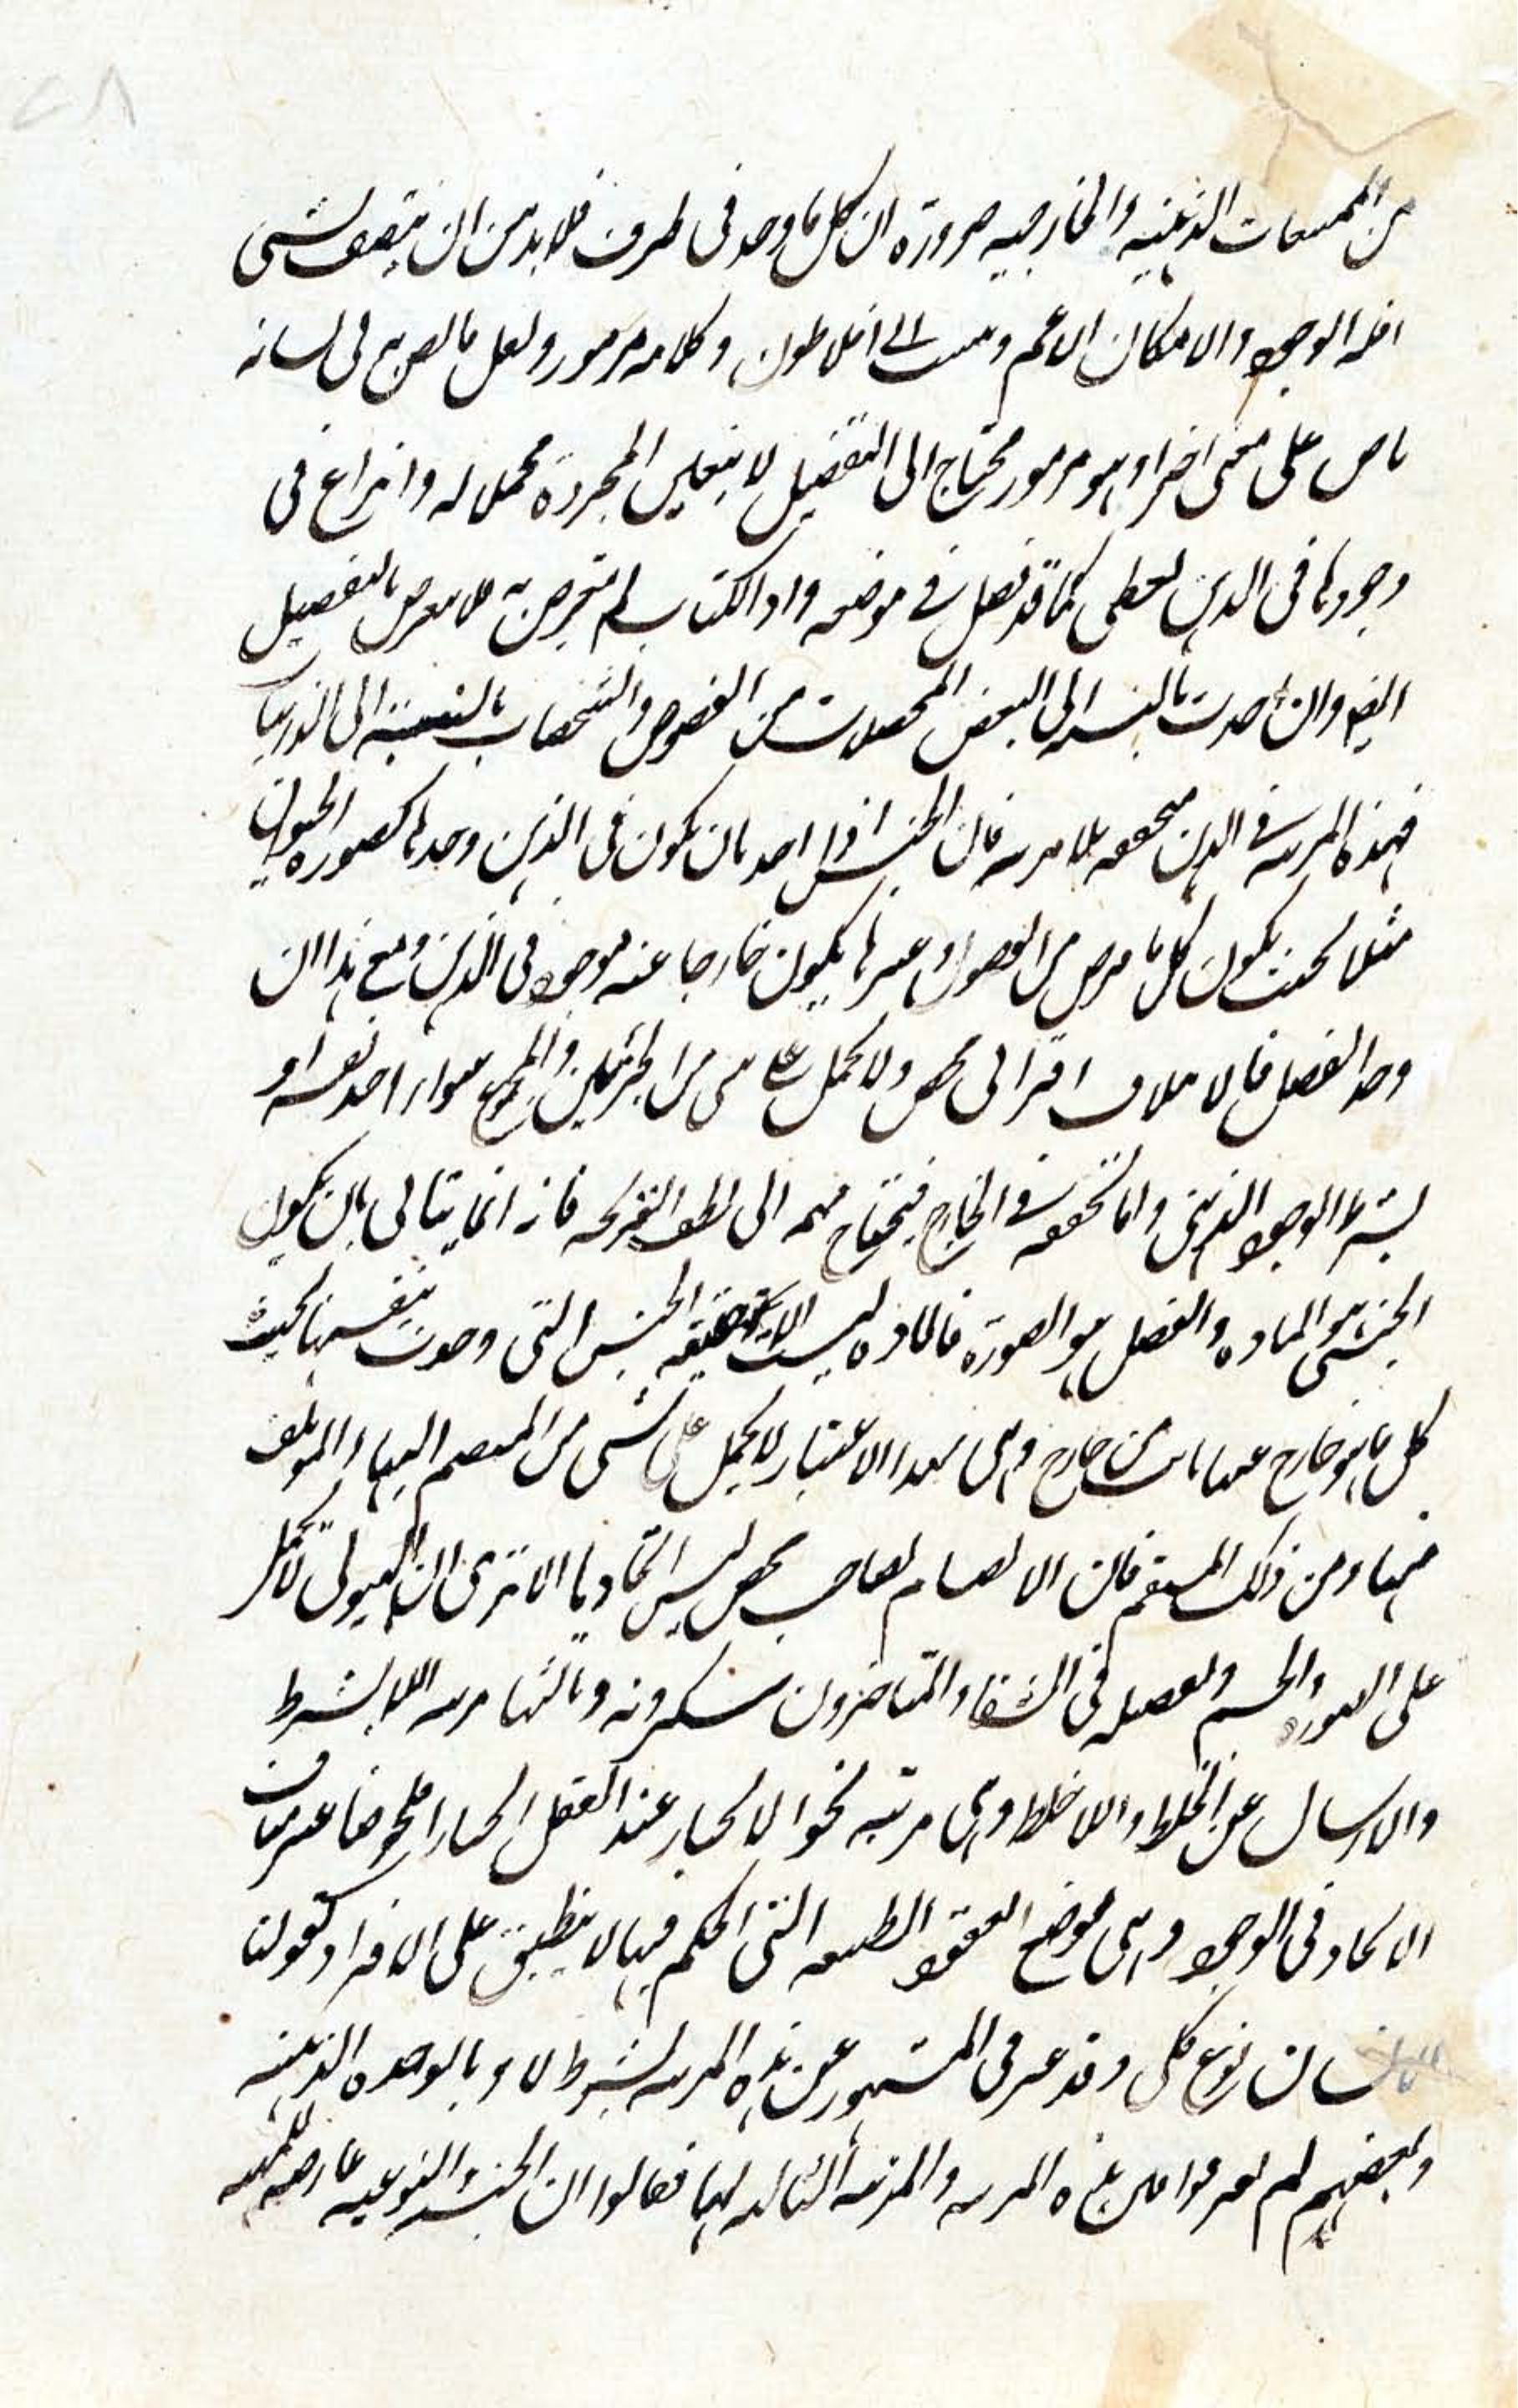 ٢٨
من الممتنعات الذهنية والخارجية ضرورة ان كل ما وجد فى ظرف فلا بد من ان يتصف بشى
اقله الوجود والامكان الاعم ونسب الى افلاطون وكلامه مرموز ولعل ما لصرح فى لسانه
ناص على معنى اخر او هو مرموز محتاج الى التفصيل لا يتعلق المجردة محمل له وانزاع فى
وجودها فى الذهن لعطى كما قد فصل فى موضعه واذ الكتاب لم يتعرض به فلا نعرض بالتفصيل
ايضا وان اخذت بالنسبة الى البعض المحصلات من الفصول والتشخصات بالنسبة الى الذاتيات
فهذه المرتبة فى الذهن متحققة بلا مرية فان الجنس اذا اخذ بان يكون فى الذهن وحدها كصورة الحيوان
مثلا بحيث يكون كل ما فرض من الفصول وغيرها يكون خارجا عنه موجود فى الذهن ومع هذا ان
وجد الفصل فالاملاف اقترانى محض ولا يحمل على شى من الجزئين والمجموع سواء اخذ نفسه او
بشرط الوجود الذهنى واما تحققه فى الخارج فيحتاج فهمه الى لطف القريحة فانه انما يتاتى بان يكون
الجنس هو المادة والفصل هو الصورة فالمادة ليست الا حقيقة الجنس التى وجدت بنفسها بحيث
كل ما هو خارج عنها بان خارج وهى بهذا الاعتبار لا يحمل على شى من المنضم اليها والمؤلف
منها ومن ذلك المنضم فان الانضمام مصاحب محض ليس اتحاديا الا ترى ان الهيولى لا تحمل
على الصورة والجسم وتفصيله فى الشفاء والمتاخرون ينكرونه وثالثها مرتبة اللا بشرط
والارسال عن الخلط واللا خلط وهى مرتبة نحو الانحياز عند العقل انحيازا ملحوظا غير مناف
الاتحاد فى الوجود وهى موضوع العقود الطبيعية التى الحكم فيها لا ينطبق على الافراد كقولنا
الانسان نوع كلى وقد عبر فى المشهور عن هذه المرتبة بشرط لا وبالوحدة الذهنية
وبعضهم لم يفرقوا بين هذه المرتبة والمرتبة التالية لها فقالوا ان الجنسية والنوعية عارضة للمهية